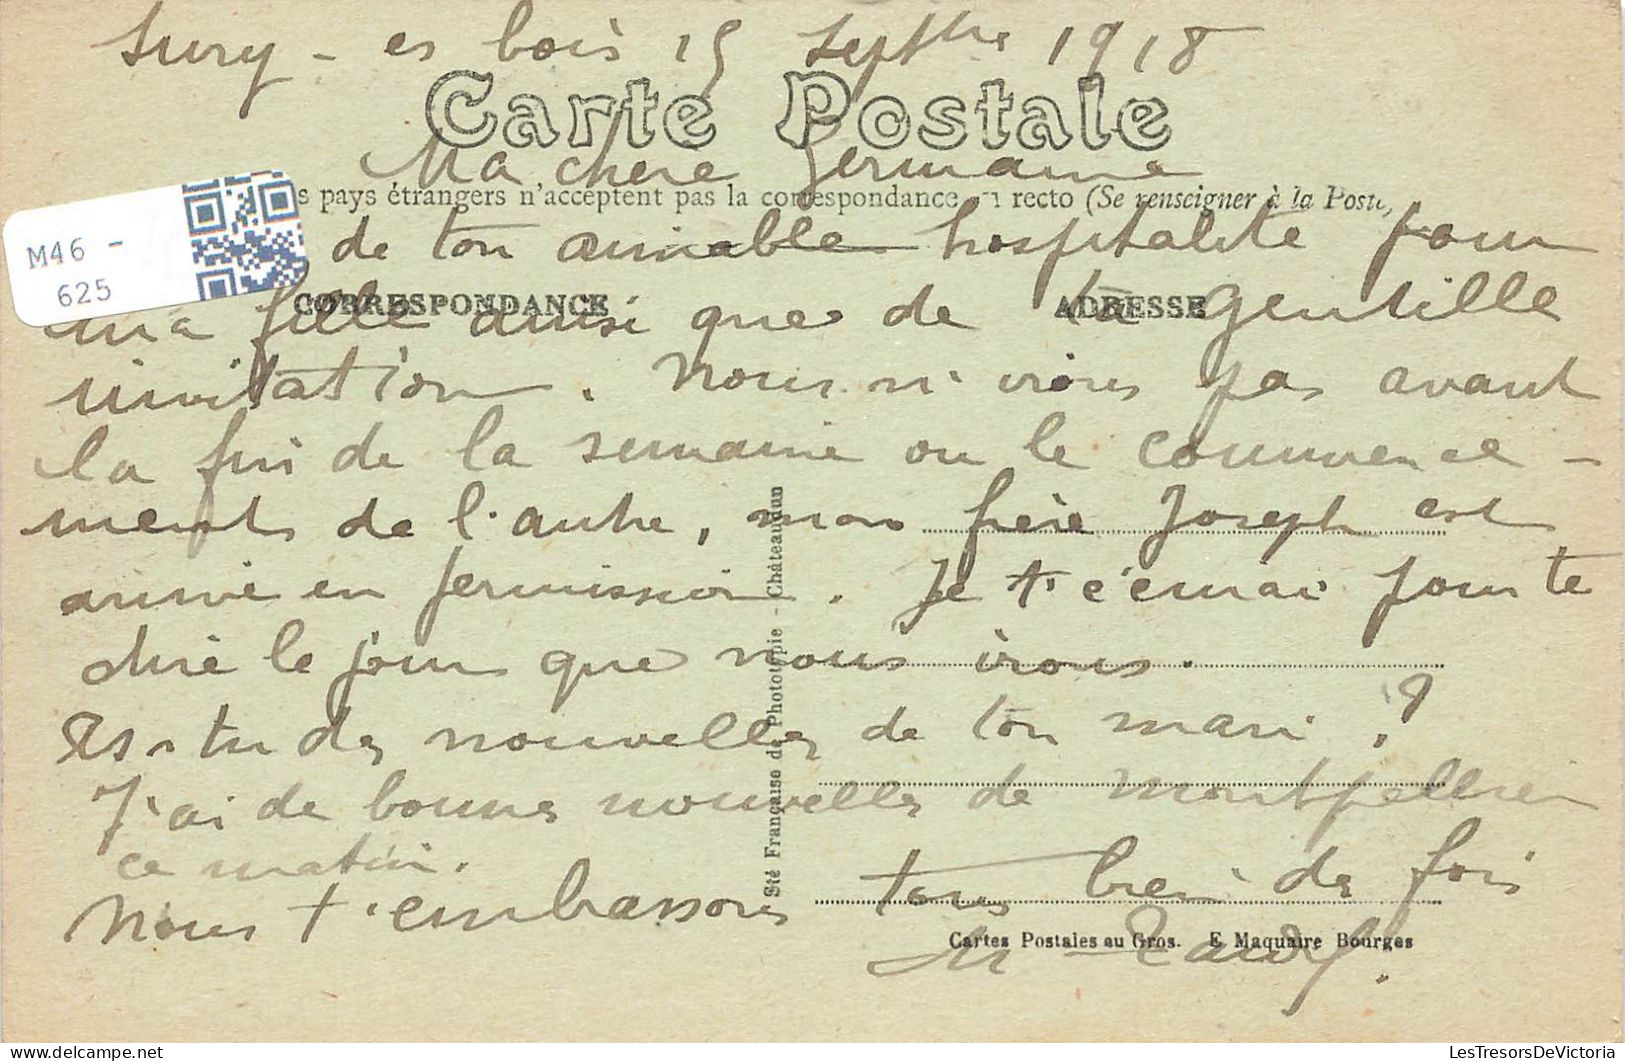 Sury - es bois 15 Septbre 1918
Carte Postale
Ma chère Germaine
s pays étrangers n'acceptent pas la correspondance au recto (Se renseigner à la Poste)
M46 -
625
de ton aimable hospitalité pour
CORRESPONDANCE
ADRESSE
ma fille ainsi que de ta gentille
invitation. Nous n'irons pas avant
la fin de la semaine ou le commence-
ments de l'autre, mon frère Joseph est
arrivé en permission. Je t'écrirai pour te
dire le jour que nous irons.
As-tu des nouvelles de ton mari ?
J'ai de bonnes nouvelles de Montpellier
ce matin.
Nous t'embrassons tous bien des fois
Cartes Postales en Gros. E. Maquaire Bourges
M
Sté Française de Phototypie - Châteaudun
LesTresorsDeVictoria